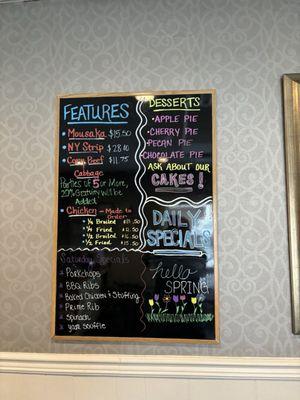 FEATURES
Mousaka $15.50
NY Strip $28.40
Corn Beef $11.75
Cabbage
Parties of 5 or More,
20% Gratuity will be
Added
Chicken - Made to
Order
1/4 Broiled
1/4 Fried
1/2 Broiled
1/2 Fried
Saturday Specials
Porkchops
BBQ Ribs
Baked Chicken & Stuffing
Prime Rib
Spinach
yam souffle
DESSERTS
APPLE PIE
CHERRY PIE
PECAN PIE
CHOCOLATE PIE
ASK ABOUT OUR
CAKES!
DAILY
SPECIALS
hello
SPRING